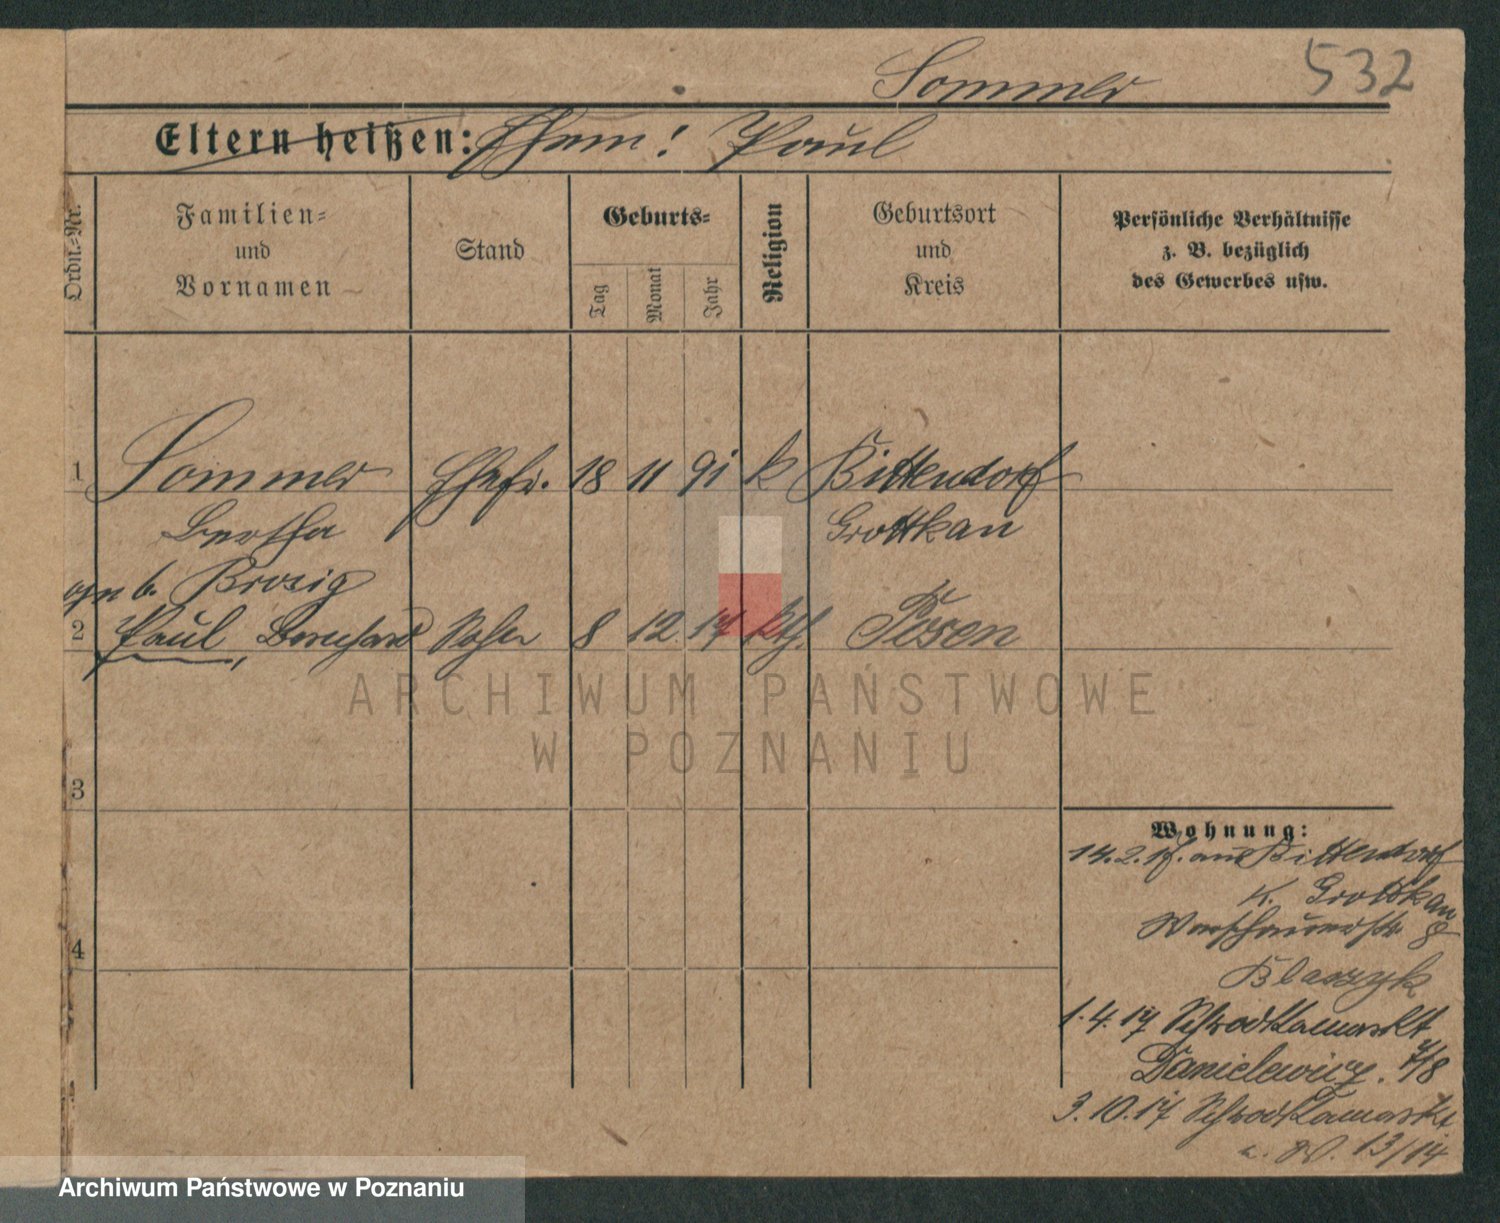 532
Sommer
Eltern heißen: Ehem: Paul
Ordn.-Nr.
Familien-
und
Vornamen
Stand
Geburts-
Tag
Monat
Jahr
Religion
Geburtsort
und
Kreis
Persönliche Verhältnisse
z. B. bezüglich
des Gewerbes usw.
1 Sommer Ehefr. 18 11 91 k Bittendorf
Bertha Grottkau
geb. Brosig
2 Paul, Bernhard Sohn 8 12 17 kth. Posen
3
4
Wohnung:
14.2.17. aus Bittendorf
K. Grottkau
Warschauerstr. 8
Blaszyk
1.4.17 Schrodkamarkt
Danielewicz. 7/8
3.10.17 Schrodkamarkt
13/14
ARCHIWUM PAŃSTWOWE
W POZNANIU
Archiwum Państwowe w Poznaniu